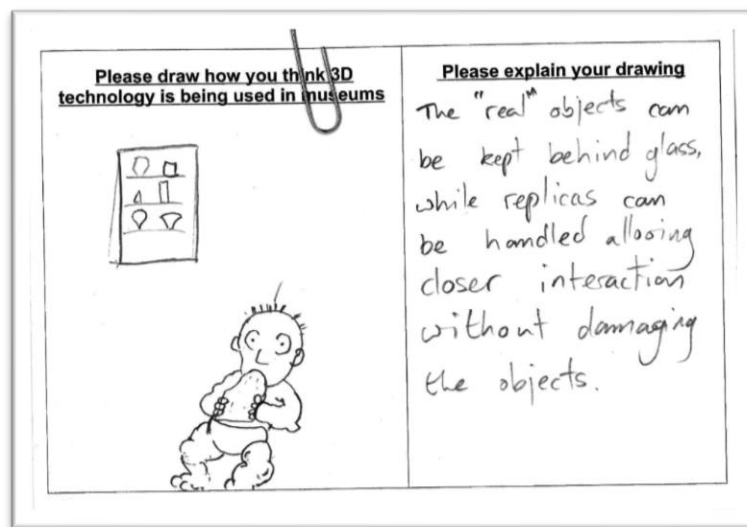 Please draw how you think 3D
technology is being used in museums
Please explain your drawing
The "real" objects can
be kept behind glass,
while replicas can
be handled allooing
closer interaction
without damaging
the objects.